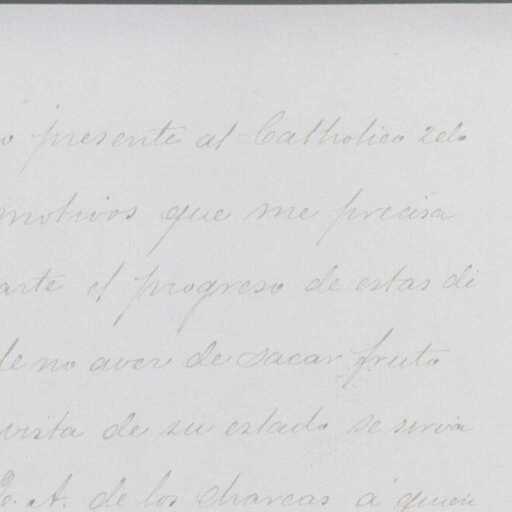 o presente al Catholico zelo
motivos que me precisa
arte el progreso de estas di
de no aver de sacar fruto
vista de su estado se sirva
E. A. de los charcas a quien